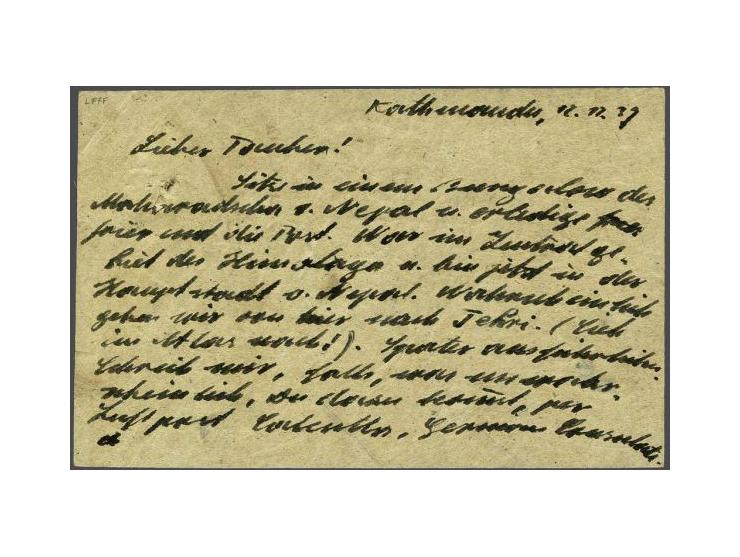 LEFF
Kathmandu, 12.11.39
Lieber Tauber!
Sitze in einem Bungalow des
Maharadscha v. Nepal u. erledige
und die Post. War im Zentral ge-
biet des Himalaya u. bin jetzt in der
Hauptstadt v. Nepal. Wahrscheinlich
gehen wir von hier nach Tehri. (Sieh
im Atlas nach!). Später ausführlicher.
Schreib mir, falls, was unwahr-
scheinlich, Du dazu kommst, per
Luftpost Calcutta, German Consulate.